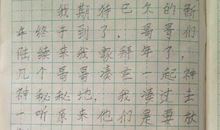 我期待已久的新
年终于到了，哥哥们
陆续来我家拜年了，
几个哥哥凑在一起神
神秘秘地，我凑过去
一听原来他们是要放